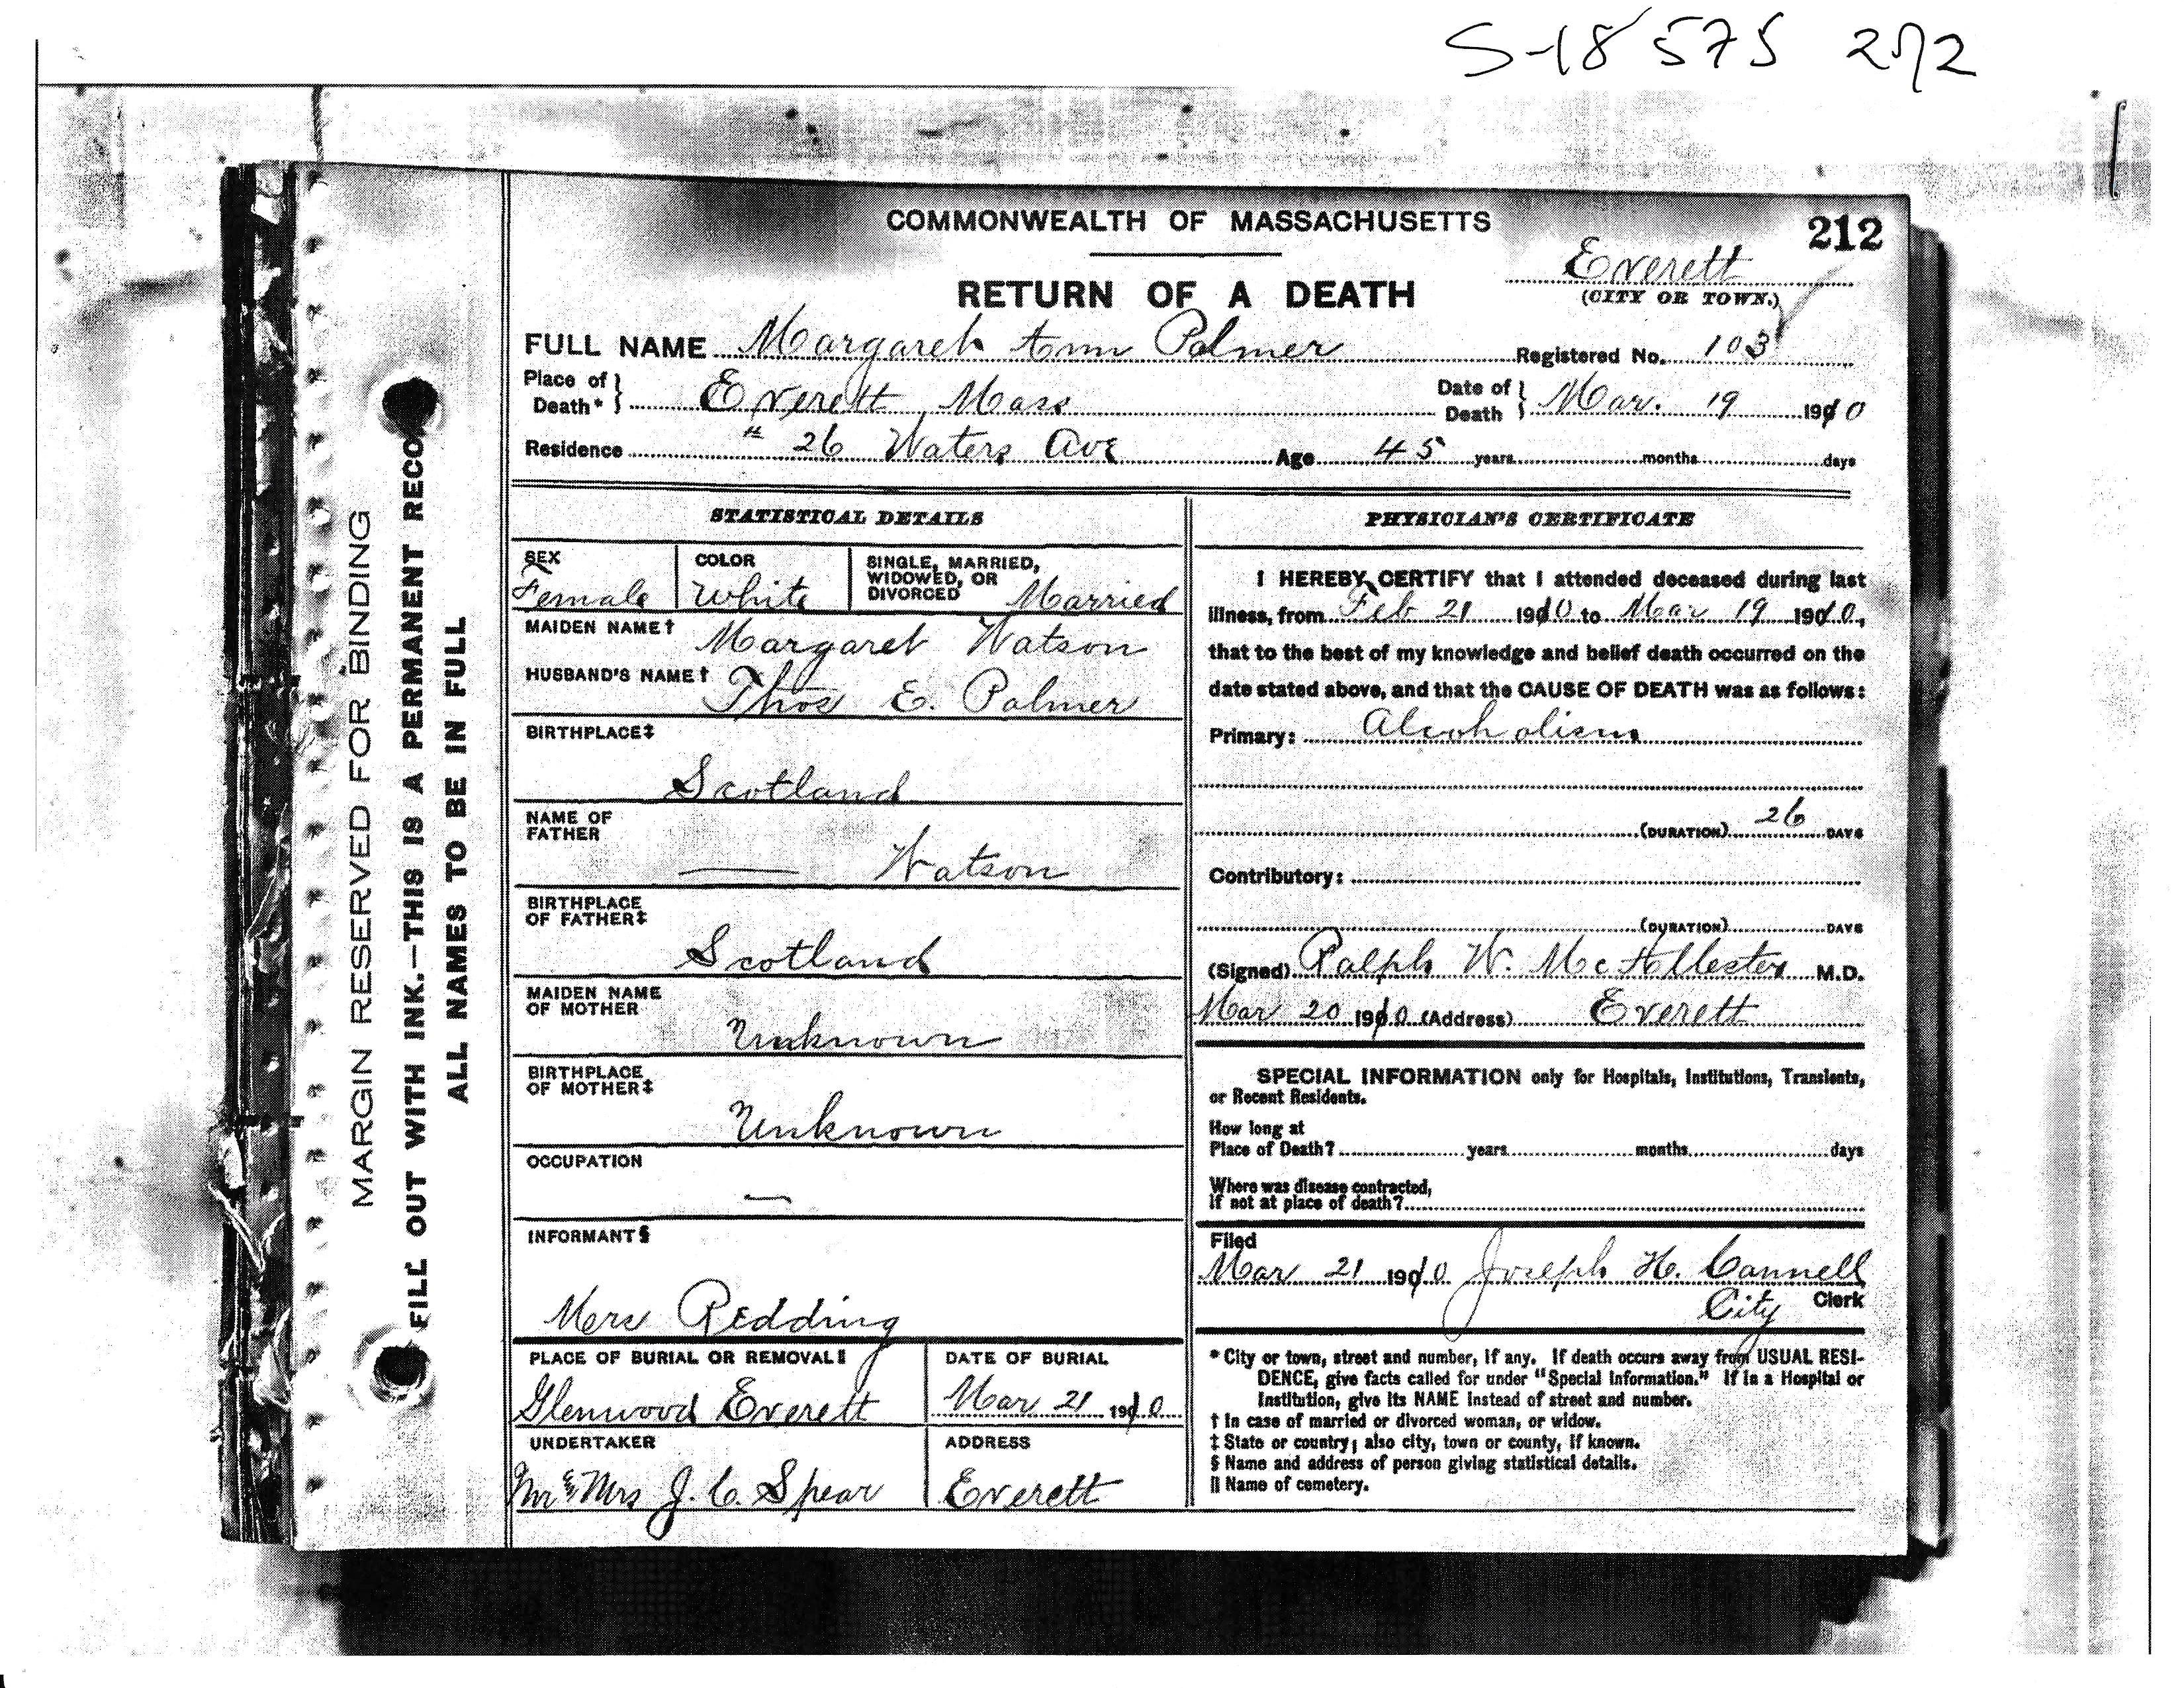 S-18575 212
COMMONWEALTH OF MASSACHUSETTS
212
Everett
(CITY OR TOWN.)
RETURN OF A DEATH
FULL NAME Margaret Ann Palmer Registered No. 103
Place of Death* Everett, Mass Date of Death Mar. 19 1910
Residence " 26 Waters Ave Age 45 years months days
MARGIN RESERVED FOR BINDING
FILL OUT WITH INK.—THIS IS A PERMANENT RECO
ALL NAMES TO BE IN FULL
STATISTICAL DETAILS
SEX Female
COLOR White
SINGLE, MARRIED, WIDOWED, OR DIVORCED Married
MAIDEN NAME† Margaret Watson
HUSBAND'S NAME† Thos E. Palmer
BIRTHPLACE‡
Scotland
NAME OF FATHER
— Watson
BIRTHPLACE OF FATHER‡
Scotland
MAIDEN NAME OF MOTHER
Unknown
BIRTHPLACE OF MOTHER‡
Unknown
OCCUPATION
—
INFORMANT§
Mrs Redding
PLACE OF BURIAL OR REMOVAL‖
Glenwood Everett
DATE OF BURIAL
Mar 21 1910
UNDERTAKER
Mr & Mrs J. C. Spear
ADDRESS
Everett
PHYSICIAN'S CERTIFICATE
I HEREBY CERTIFY that I attended deceased during last
illness, from Feb 21 1910 to Mar 19 1910,
that to the best of my knowledge and belief death occurred on the
date stated above, and that the CAUSE OF DEATH was as follows:
Primary: Alcoholism
(DURATION) 26 DAYS
Contributory:
(DURATION) DAYS
(Signed) Ralph W. McAllester M.D.
Mar 20 1910 (Address) Everett
SPECIAL INFORMATION only for Hospitals, Institutions, Transients,
or Recent Residents.
How long at
Place of Death? years months days
Where was disease contracted,
if not at place of death?
Filed
Mar 21 1910 Joseph H. Cannell
City Clerk
* City or town, street and number, if any. If death occurs away from USUAL RESI-
DENCE, give facts called for under "Special Information." If in a Hospital or
Institution, give its NAME instead of street and number.
† In case of married or divorced woman, or widow.
‡ State or country; also city, town or county, if known.
§ Name and address of person giving statistical details.
‖ Name of cemetery.